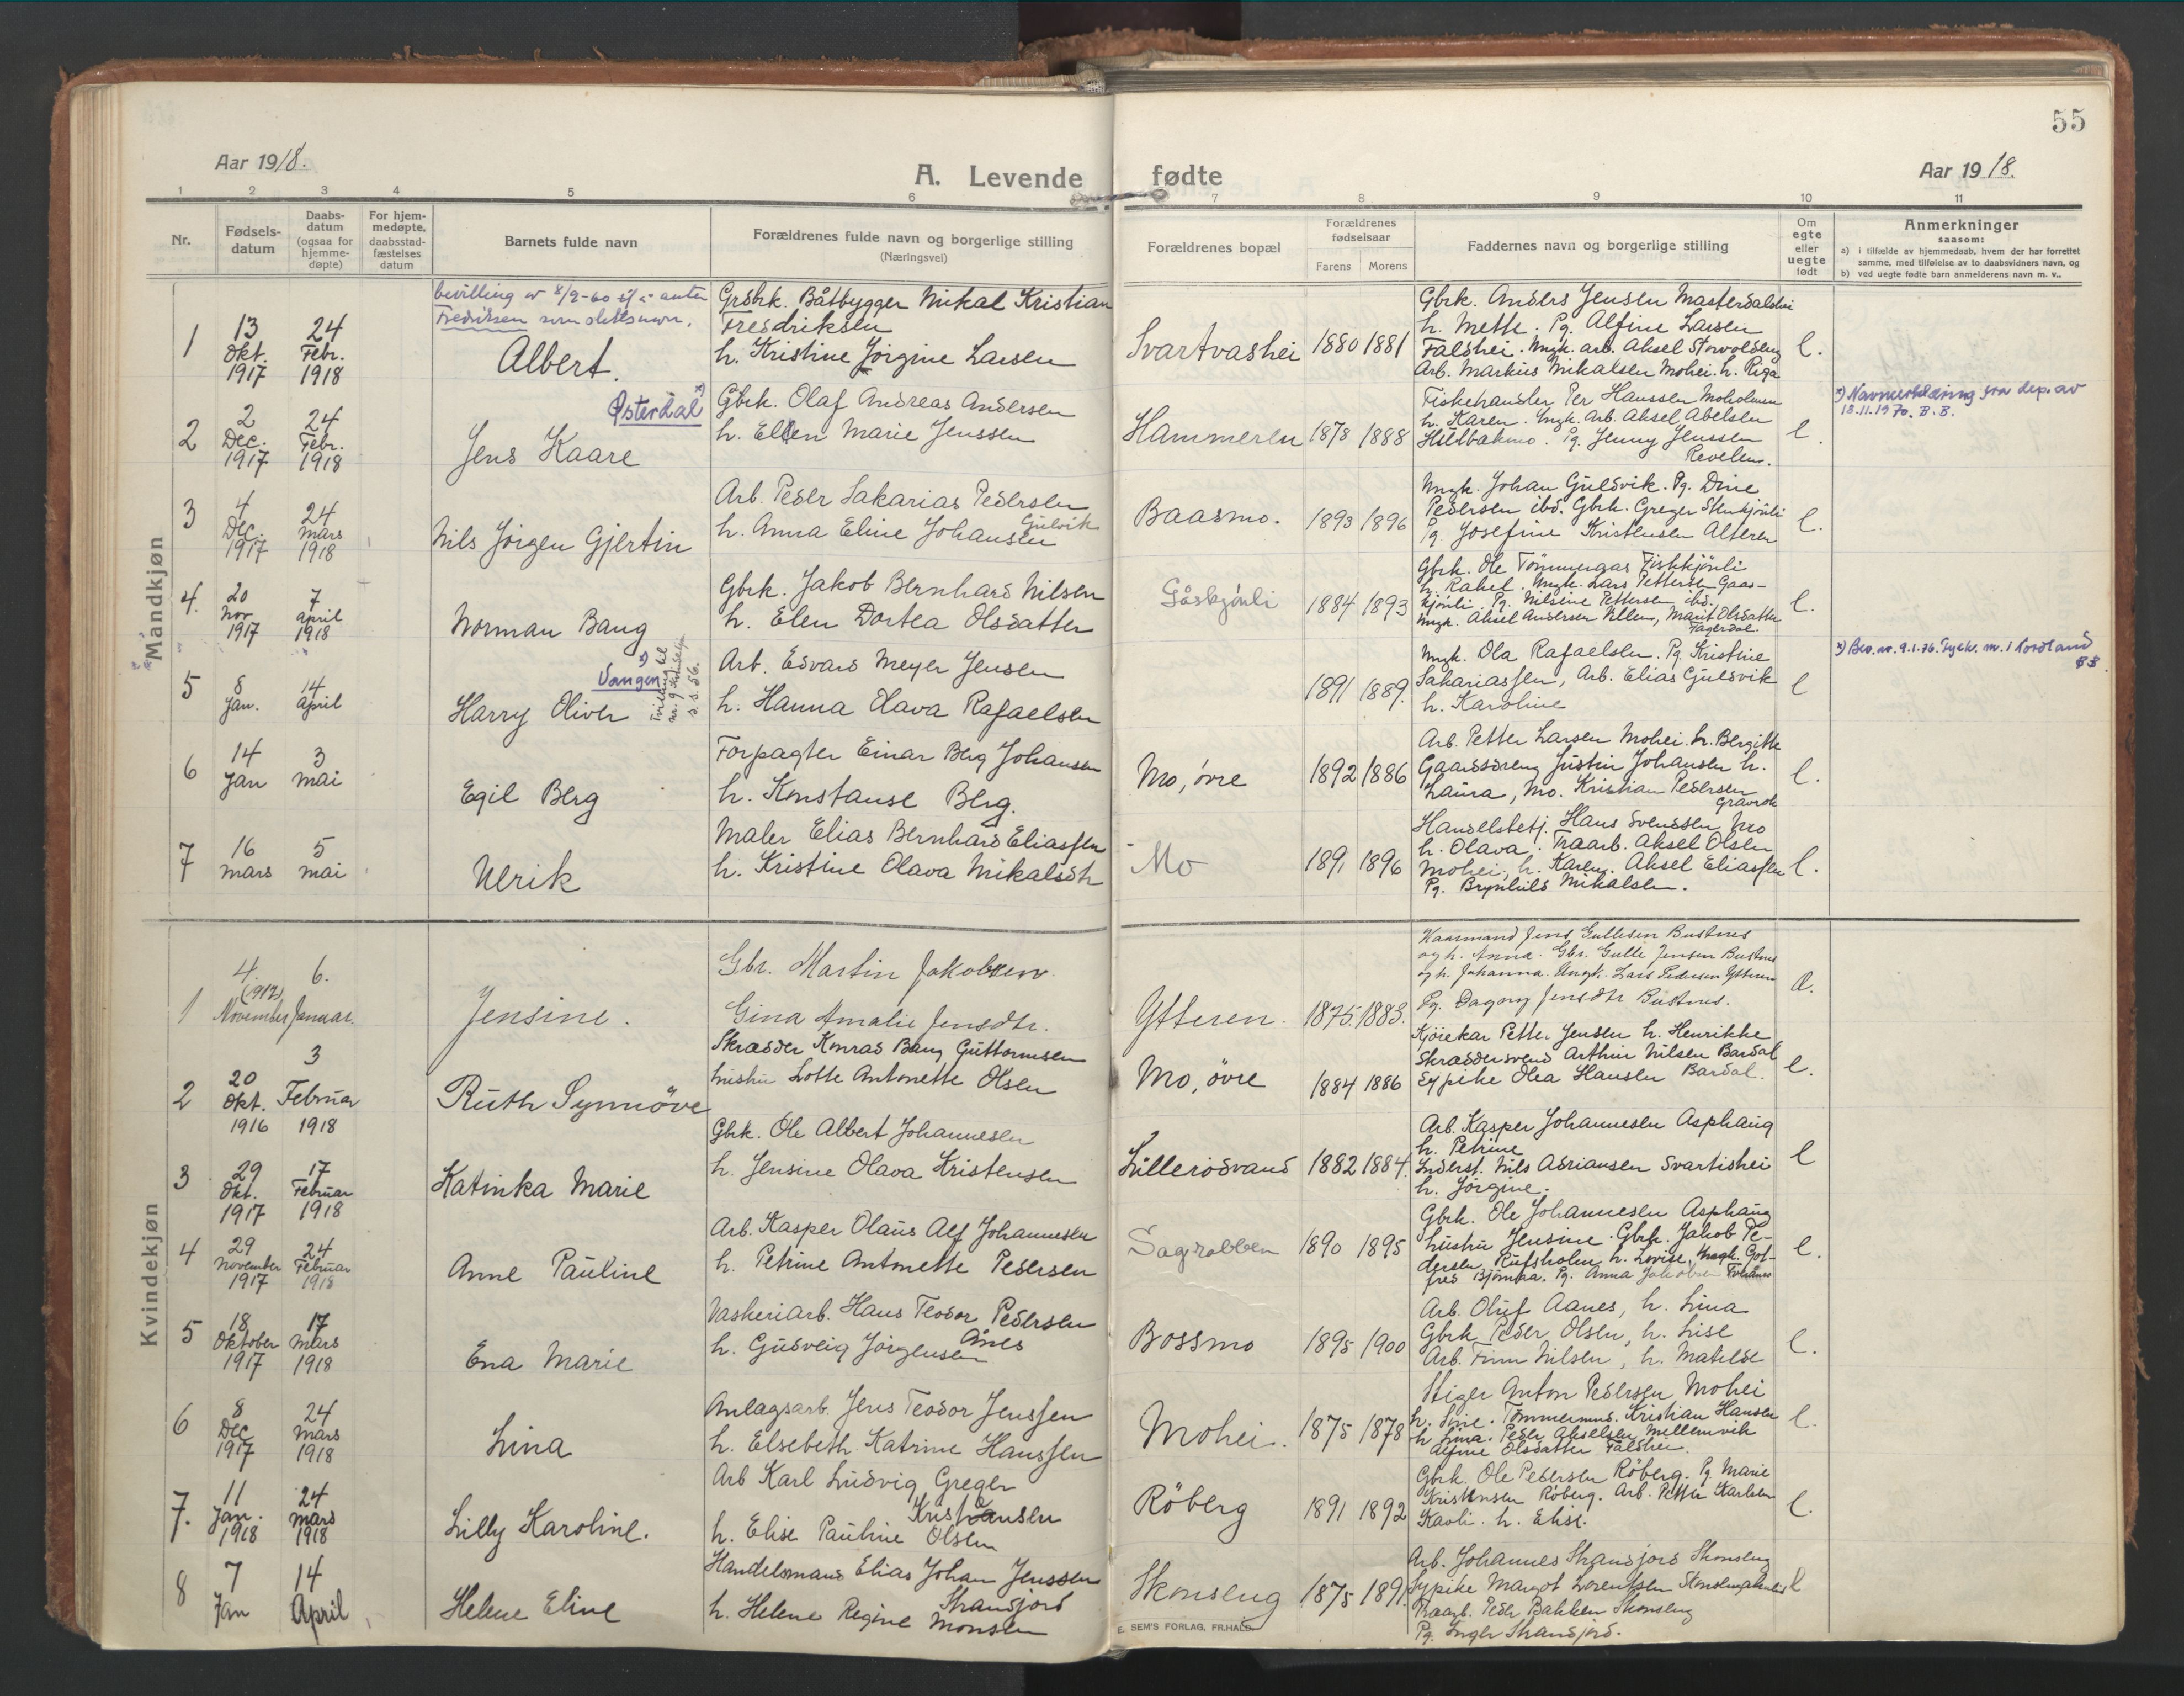 55
Aar 1918.
A. Levende fødte
Aar 1918.
1 2 3 4 5 6 7 8 9 10 11
Nr.
Fødsels-
datum
Daabs-
datum
(ogsaa for
hjemme-
døpte)
For hjem-
medøpte,
daabsstad-
fæstelses
datum
Barnets fulde navn
Forældrenes fulde navn og borgerlige stilling
(Næringsvei)
Forældrenes bopæl
Forældrenes
fødselsaar
Farens Morens
Faddernes navn og borgerlige stilling
Om
egte
eller
uegte
født
Anmerkninger
saasom:
a) i tilfælde av hjemmedaab, hvem der har forrettet
samme, med tilføielse av to daabsvidners navn, og
b) ved uegte fødte barn anmelderens navn m. v..
Mandkjøn
1
13
Okt.
1917
24
Febr.
1918
bevilling av 8/2-60 til å anta
Fredriksen som slektsnavn.
Albert.
Grdbrk. Båtbygger Mikal Kristian
Fredriksen
h. Kristine Jörgine Larsen
Svartvashei
1880 1881
Gbrk. Anders Jensen
h. Mette. Pg. Alfine Larsen
Falshei. Ungk. arb. Aksel Storvoldeng
Arb. Markus Mikalsen Mohei. h.
e.
2
2
Dec.
1917
24
Febr.
1918
Østerdal x)
Jens Kaare
Gbrk. Olaf Andreas Andersen
h. Ellen Marie Jenssen
Hammeren
1878 1888
Fiskehandler Per Hanssen Moholmen
h. Karen. Ungk. Arb. Aksel Abelsen
Hildbakmo. Pg. Jenny Jenssen
Revelen.
e.
x) Navneerklæring fra dep. av
18.11.1970. B.B.
3
4
Dec.
1917
24
Mars
1918
Nils Jörgen Gjertin
Arb. Peder Sakarias Pedersen
Gulvik
h. Anna Eline Johansen
Baasmo.
1893 1896
Ungk. Johan Guldvik. Pg. Dine
Pedersen ibd. Gbrk. Greger Stenkjönli
Pg. Josefine Kristensen Alteren
e.
4.
20
Nov.
1917
7
April
1918
Norman Bang
Gbrk. Jakob Bernhard Nilsen
h. Elen Dortea Olsdatter
Gåskjönli
1884 1893
Gbrk. Ole Tömmergas Fiskkjönli
h. Rakel. Ungk. Lars Pettersen Gaas-
kjönli. Pg. Nilsine Pettersen ibd.
Ungk. Aksel Andersen, Marit Olsdatter
Fagerdal.
e.
5
8
Jan.
14
April
Vangen x)
Harry Oliver
Tvilling til
nr. 9 kvindekj.
s. s. 56.
Arb. Edvard Meyer Jensen
h. Hanna Olava Rafaelsen
1891 1889.
Ungk. Ola Rafaelsen. Pg. Kristine
Sakariassen, Arb. Elias Guldvik
h. Karoline
e
x) Bev. av 9.1.76. Fylk. m. i Nordland
BB.
6
14
Jan
3
Mai
Egil Berg
Forpagter Einar Berg Johansen
h. Konstanse Berg.
Mo, övre
1892 1886
Arb. Petter Larsen Mohei. h. Bergitte
Gaardsdreng Justin Johansen h.
Laura, Mo. Kristian Pedersen
e.
7
16
Mars
5
Mai
Ulrik
Maler Elias Bernhard Eliassen
h. Kristine Olava Mikalsdtr
Mo
1891 1896
Handelsbetj. Hans Svenssen Mo
h. Olava. Traarb. Aksel Olsen
Mohei, h. Karen. Aksel Eliassen
Pg. Brynhild Mikalsen.
e.
Kvindekjøn
1
4.
(1917)
November
6.
Januar.
Jensine.
Gbr. Martin Jakobsen.
Gina Amalie Jensdtr.
Ytteren.
1875. 1883.
Kaarmand Jens Gullesen Bustnes
og h. Anna. Gbr. Gulle Jensen Bustnes
og h. Johanna. Ungk. Lars Pedersen Ytteren
Pg. Dagny Jensdtr Bustnes.
e.
2
20
Okt.
1916
3
Februar
1918
Ruth Synnöve
Skrædder Konrad Bang Guttormsen
hustru Lotte Antonette Olsen
Mo, övre
1884 1886
Kjörekar Petter Jensen h. Henrikke
Skræddersvend Arthur Nilsen Bardal
Sypike Olea Hansen Bardal.
e.
3
29
Okt.
1917
17
Februar
1918
Katinka Marie
Gbrk. Ole Albert Johannesen
h. Jensine Olava Kristensen
Lillerödvand
1882 1884.
Arb. Kasper Johannesen Asphaug
h. Petrine
Inderst. Nils Adriansen Svartishei
h. Jörgine.
e
4
29
November
1917
24
Februar
1918
Anne Pauline
Arb. Kasper Olaus Alf Johannesen
h. Petrine Antonette Pedersen
Sagrabben
1890 1895
Gbrk. Ole Johannesen Asphaug
hustru Jensine. Gbrk. Jakob Pe-
dersen Rufsholm, h. Lovise, Ungk. Got-
fred Bjömaa. Pg. Anna Jakobsen
e.
5
18
Oktober
1917
17
Mars
1918
Ena Marie
Vaskeriarb. Hans Teodor Pedersen
Ånes
h. Gudveig Jörgensen
Bossmo
1895 1900
Arb. Oluf Aanes, h. Lina
Gbrk Peder Olsen, h. Lise
Arb. Finn Nilsen, h. Matilde
e.
6
8
Dec
1917
24
Mars
1918
Lina
Anlagsarb. Jens Teodor Jenssen
h. Elsebeth Katrine Hanssen
Mohei.
1875 1878
Stiger Anton Pedersen Mohei
h. Line. Tömmermd. Kristian Hansen
h Lina. Peder Akselsen Mellemvik
Alfine Olsdatter Falshei.
e.
7.
11
Jan.
1918
24
Mars
1918
Lilly Karoline.
Arb Karl Ludvig Greger
Kristiansen
h. Elise Pauline Olsen
Röberg
1891 1892
Gbrk. Ole Pedersen Röberg. Pg. Marie
Kristensen Röberg. Arb. Petter Karlsen
Kavli. h. Elise.
e.
8
7
Jan
14
April
Helene Eline
Handelsmand Elias Johan Jenssen
Strandjord
h. Helene Regine Monsen
Skonseng
1875 1891.
Arb. Johannes Strandjord Skonseng
Sypike Margot Lorentsen
Traarb. Peder Bakken Skonseng
Pg. Inger Strandjord.
e
E. SEM'S FORLAG, FR.HALD.